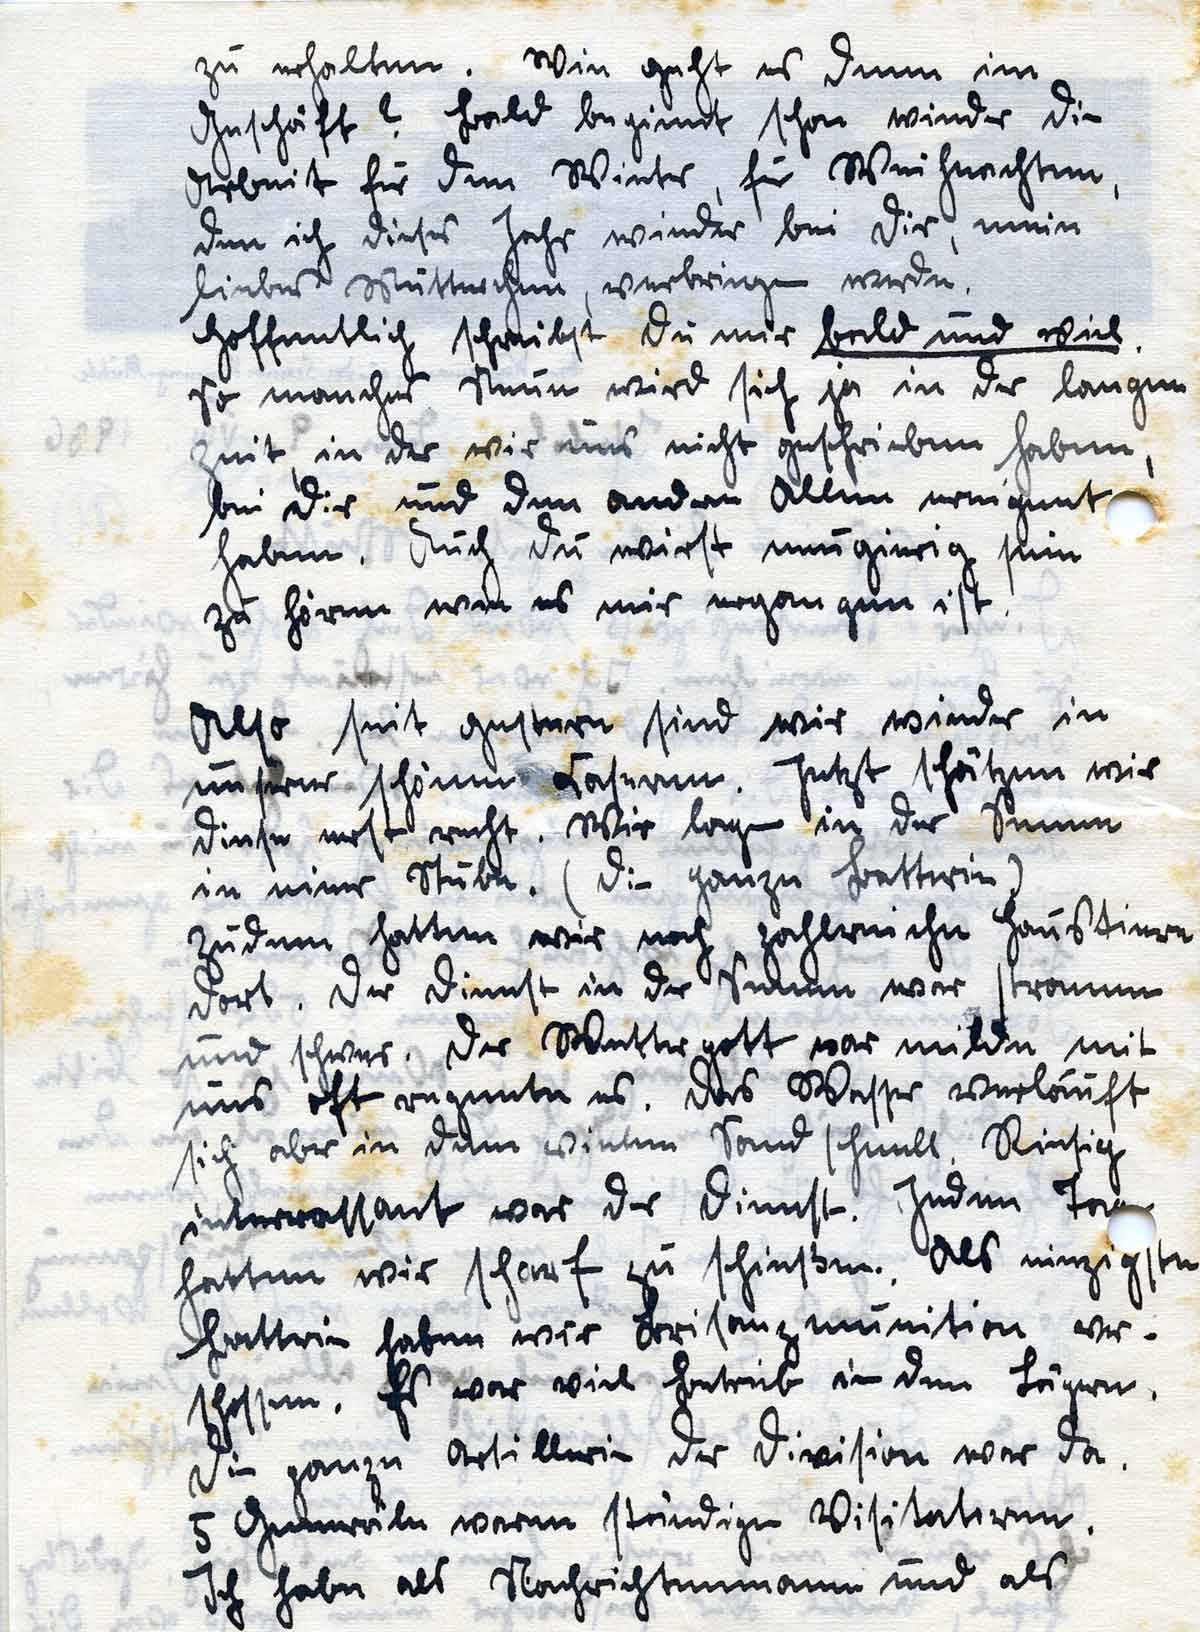 zu erhalten. Wie geht es denn im
Geschäft? Bald beginnt schon wieder die
Arbeit für den Winter, für Weihnachten,
den ich dieses Jahr wieder bei Dir, mein
liebes Mütterchen, verbringen werde.
Hoffentlich schreibst Du mir bald und viel.
So manches Neue wird sich ja in der langen
Zeit, in der wir uns nicht geschrieben haben,
bei Dir und den andern Allen ereignet
haben. Auch Du wirst neugierig sein
zu hören wie es mir ergangen ist.
Also seit gestern sind wir wieder in
unserer schönen Kaserne. Jetzt schätzen wir
diese erst recht. Wir lagen in der Senne
in einer Stube. (Die ganze Batterie)
Zudem hatten wir noch zahlreiche Haustiere
dort. Der Dienst in der Senne war stramm
und schwer. Der Wettergott war milde mit
uns oft regnete es. Das Wasser verläuft
sich aber in dem vielen Sand schnell. Riesig
interressant war der Dienst. Jeden Tag
hatten wir scharf zu schießen. Als einzigste
Batterie haben wir Brisanzmunition ver-
schossen. Es war viel Betrieb in den Lägern.
Die ganze Artillerie der Division war da.
5 Generäle waren ständige Visitatieren.
Ich habe als Nachrichtenmann und als